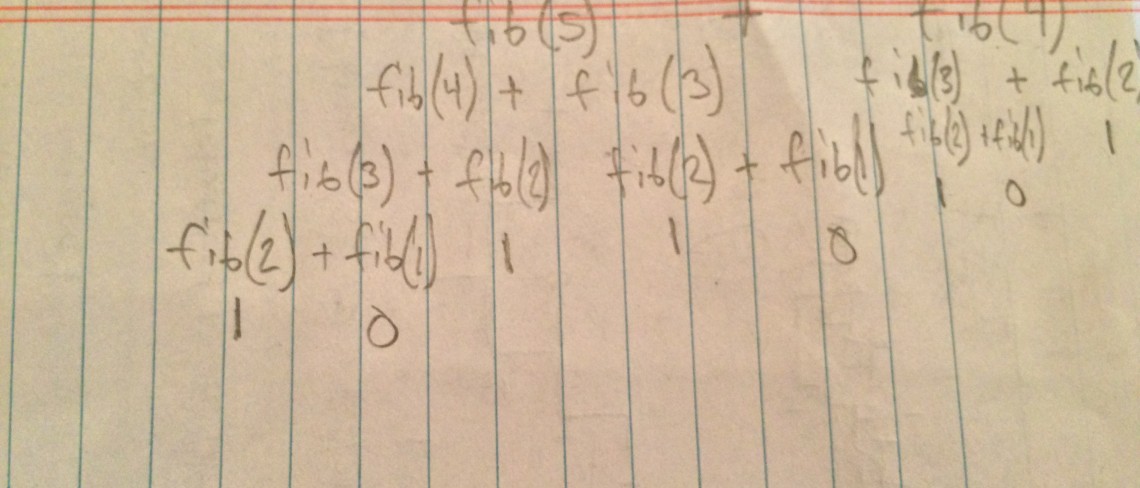 fib(5) + fib(4)
fib(4) + fib(3) fib(3) + fib(2)
fib(3) + fib(2) fib(2) + fib(1) fib(2) + fib(1) 1
fib(2) + fib(1) 1 1 0 1 0
1 0